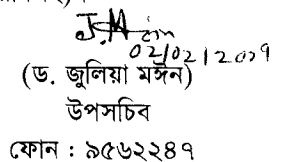 02/02/2019
(ড. জুলিয়া মঈন)
উপসচিব
ফোন : ৯৫৬২২৪৭